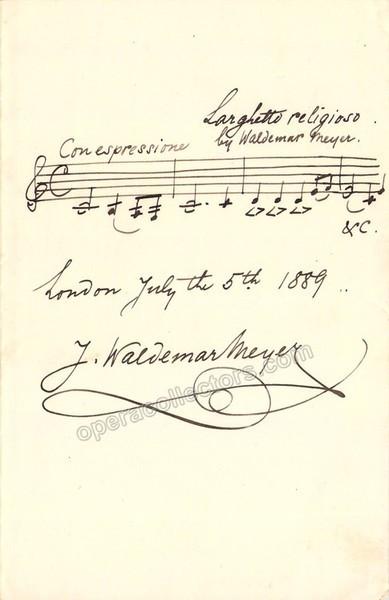 Larghetto religioso.
by Waldemar Meyer.
Con espressione
&C.
London July the 5th 1889..
J. Waldemar Meyer
operacollectors.com